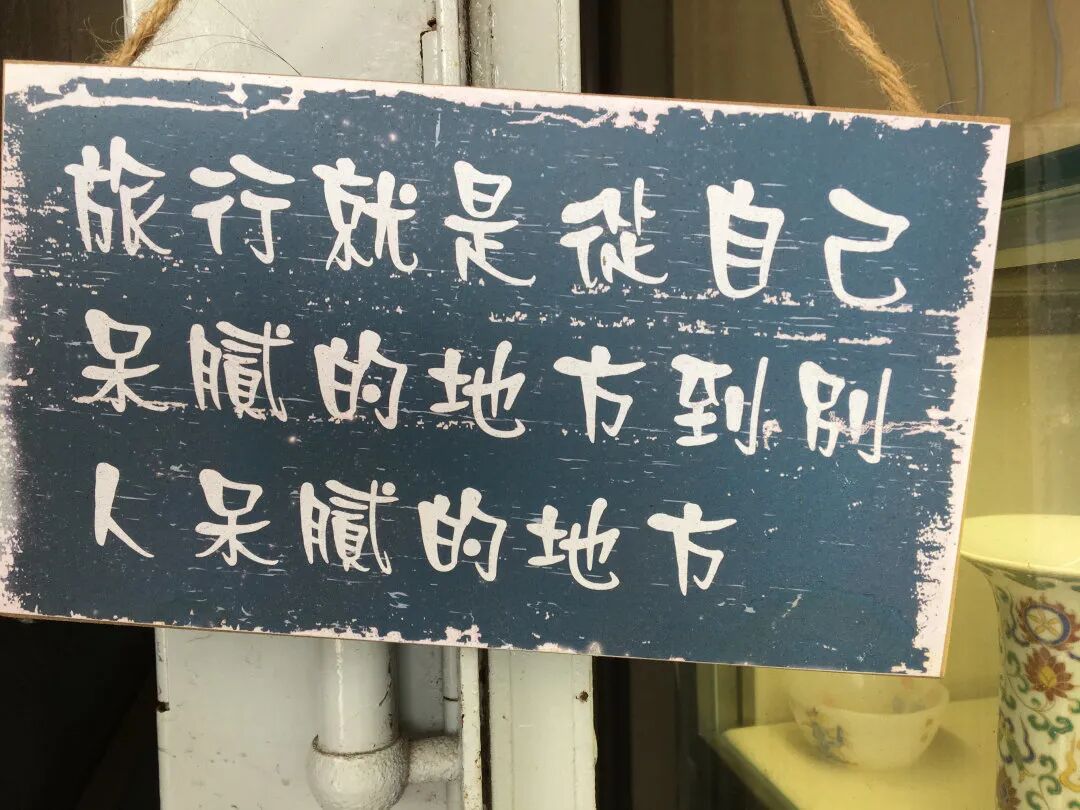 旅行就是從自己
呆膩的地方到別
人呆膩的地方